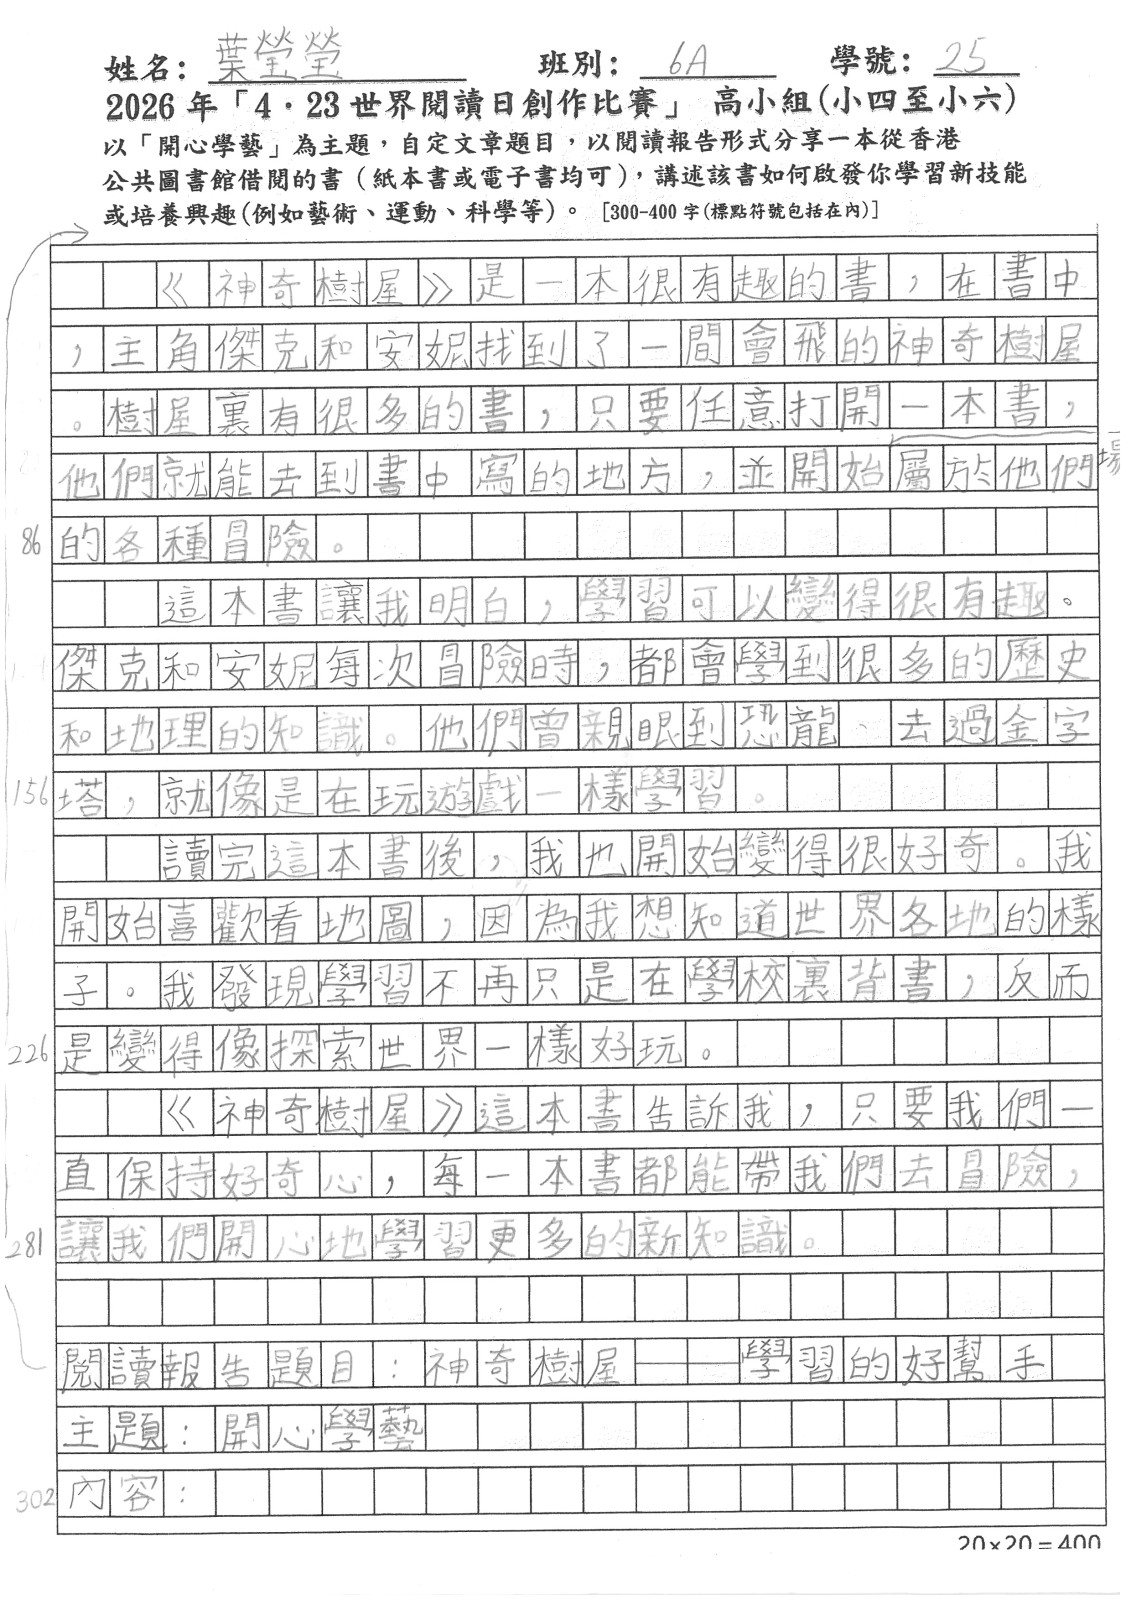 姓名：葉瑩瑩 班別：6A 學號：25
2026 年「4．23 世界閱讀日創作比賽」 高小組(小四至小六)
以「開心學藝」為主題，自定文章題目，以閱讀報告形式分享一本從香港
公共圖書館借閱的書（紙本書或電子書均可），講述該書如何啟發你學習新技能
或培養興趣(例如藝術、運動、科學等)。 [300-400 字(標點符號包括在內)]
《神奇樹屋》是一本很有趣的書，在書中
，主角傑克和安妮找到了一間會飛的神奇樹屋
。樹屋裏有很多的書，只要任意打開一本書，
他們就能去到書中寫的地方，並開始屬於他們
一場
86 的各種冒險。
這本書讓我明白，學習可以變得很有趣。
傑克和安妮每次冒險時，都會學到很多的歷史
和地理的知識。他們曾親眼到恐龍、去過金字
156 塔，就像是在玩遊戲一樣學習。
讀完這本書後，我也開始變得很好奇。我
開始喜歡看地圖，因為我想知道世界各地的樣
子。我發現學習不再只是在學校裏背書，反而
226 是變得像探索世界一樣好玩。
《神奇樹屋》這本書告訴我，只要我們一
直保持好奇心，每一本書都能帶我們去冒險，
281 讓我們開心地學習更多的新知識。
閱讀報告題目：神奇樹屋——學習的好幫手
主題：開心學藝
302 內容：
20×20=400